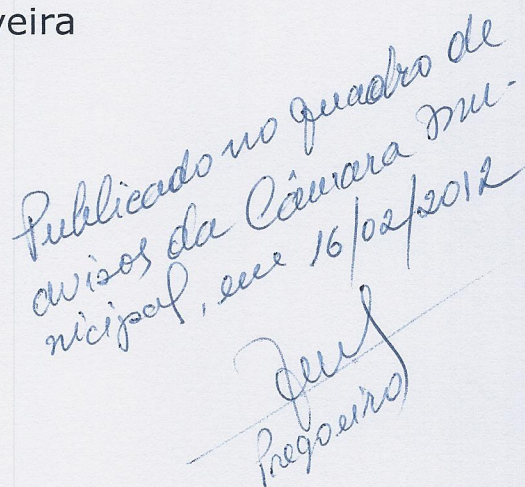 veira
Publicado no quadro de
avisos da Câmara mu-
nicipal, em 16/02/2012
Pregoeiro